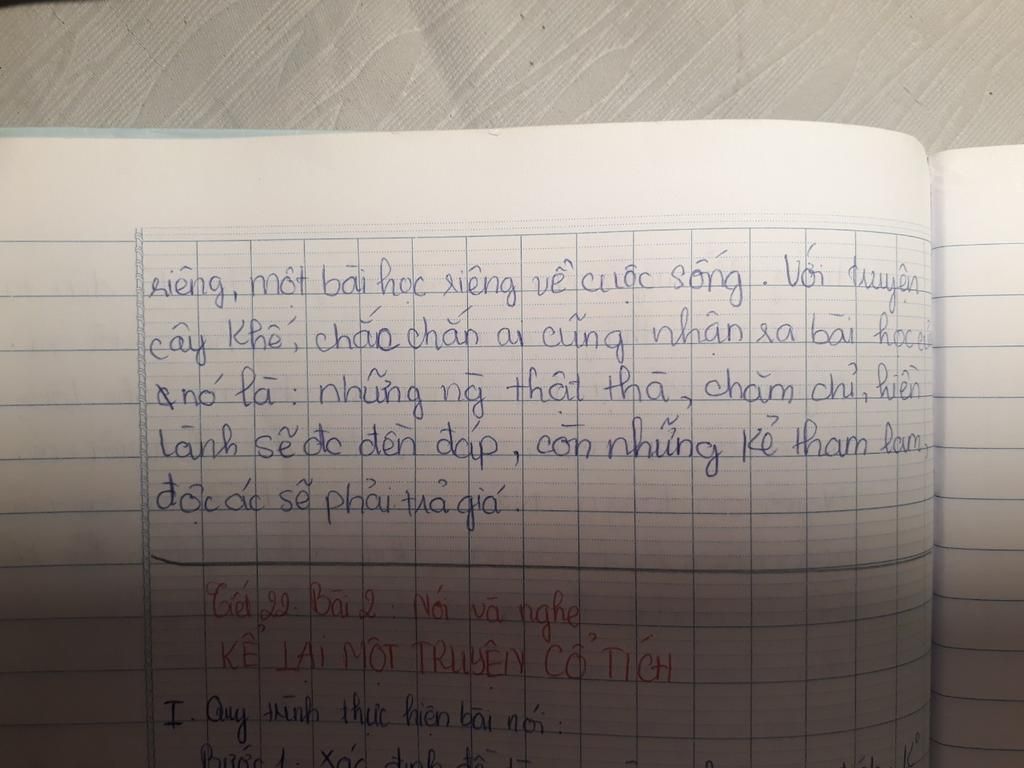 riêng, một bài học riêng về cuộc sống. Với truyện
cây khế, chắc chắn ai cũng nhận ra bài học
nó là: những ng thật thà, chăm chỉ, hiền
lành sẽ đc đền đáp, còn những kẻ tham lam,
độc ác sẽ phải trả giá.
Tiết 22. Bài 2. Nói và nghe
KỂ LẠI MỘT TRUYỆN CỔ TÍCH
I. Quy trình thực hiện bài nói:
Bước 1. Xác định đề